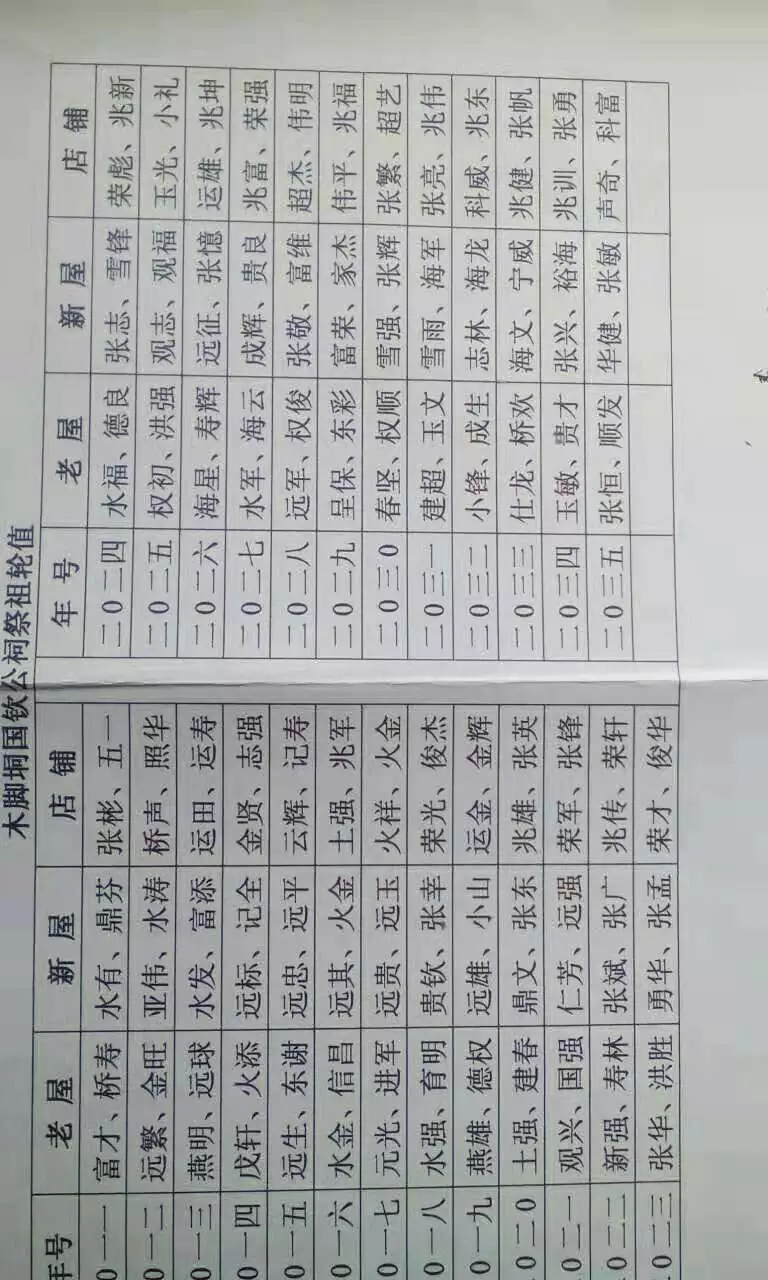 木脚垌国钦公祠祭祖轮值
年号 老屋 新屋 店铺 年号 老屋 新屋 店铺
0一一 富才、桥寿 水有、鼎芬 张彬、五一 二0二四 水福、德良 张志、雪锋 荣彪、兆新
0一二 远繁、金旺 亚伟、水涛 桥声、照华 二0二五 权初、洪强 观志、观福 玉光、小礼
0一三 燕明、远球 水发、富添 运田、运寿 二0二六 海星、寿辉 远征、张憶 运雄、兆坤
0一四 戊轩、火添 远标、记全 金贤、志强 二0二七 水军、海云 成辉、贵良 兆富、荣强
0一五 远生、东谢 远忠、远平 云辉、记寿 二0二八 远军、权俊 张敬、富维 超杰、伟明
0一六 水金、信昌 远其、火金 土强、兆军 二0二九 呈保、东彩 富荣、家杰 伟平、兆福
0一七 元光、进军 远贵、远玉 火祥、火金 二0三0 春坚、权顺 雪强、张辉 张繁、超艺
0一八 水强、育明 贵钦、张幸 荣光、俊杰 二0三一 建超、玉文 雪雨、海军 张亮、兆伟
0一九 燕雄、德权 远雄、小山 运金、金辉 二0三二 小锋、成生 志林、海龙 科威、兆东
0二0 土强、建春 鼎文、张东 兆雄、张英 二0三三 仕龙、桥欢 海文、宁威 兆健、张帆
0二一 观兴、国强 仁芳、远强 荣军、张锋 二0三四 玉敏、贵才 张兴、裕海 兆训、张勇
0二二 新强、寿林 张斌、张广 兆传、荣轩 二0三五 张恒、顺发 华健、张敏 声奇、科富
0二三 张华、洪胜 勇华、张孟 荣才、俊华